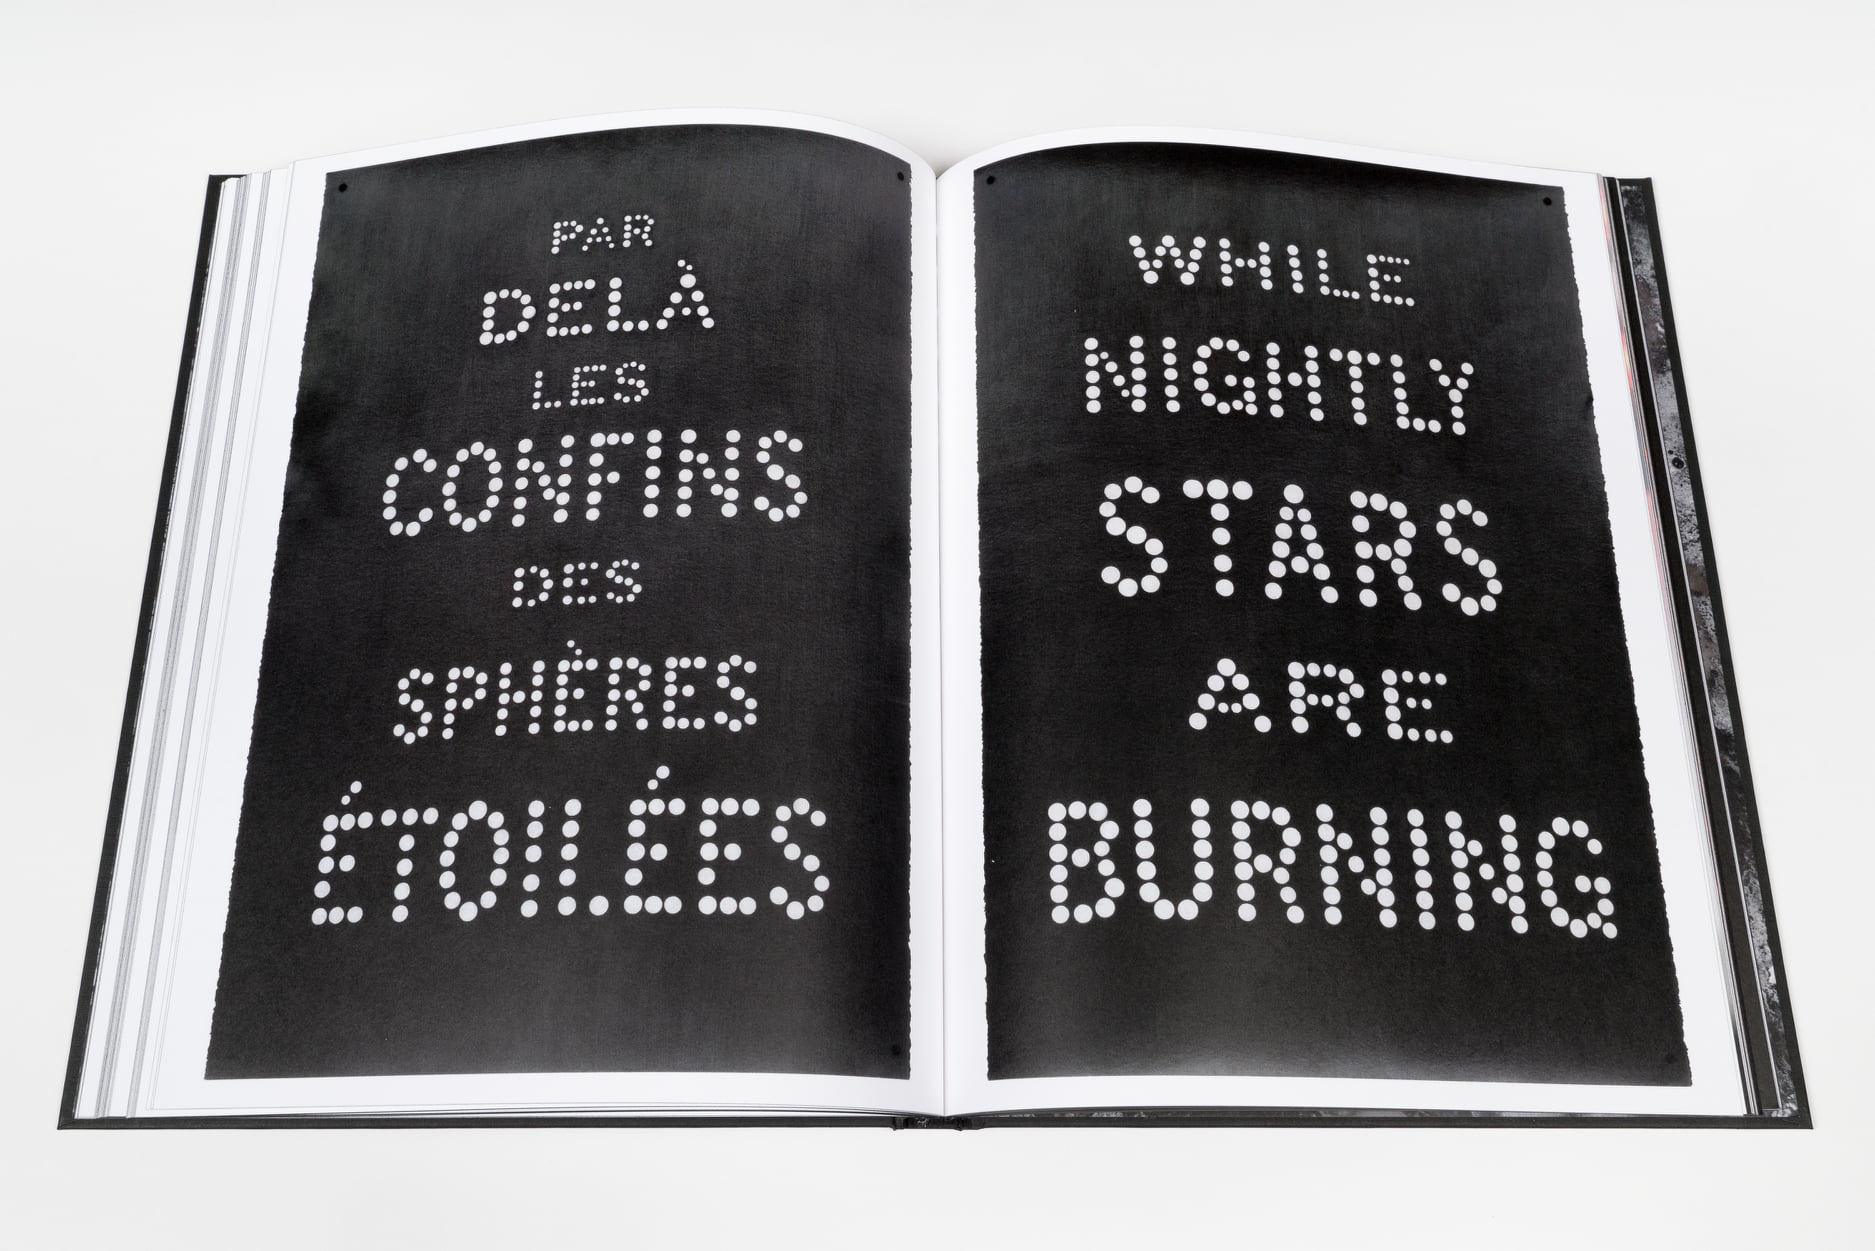 PAR
DELÀ
LES
CONFINS
DES
SPHÈRES
ÉTOILÉES
WHILE
NIGHTLY
STARS
ARE
BURNING